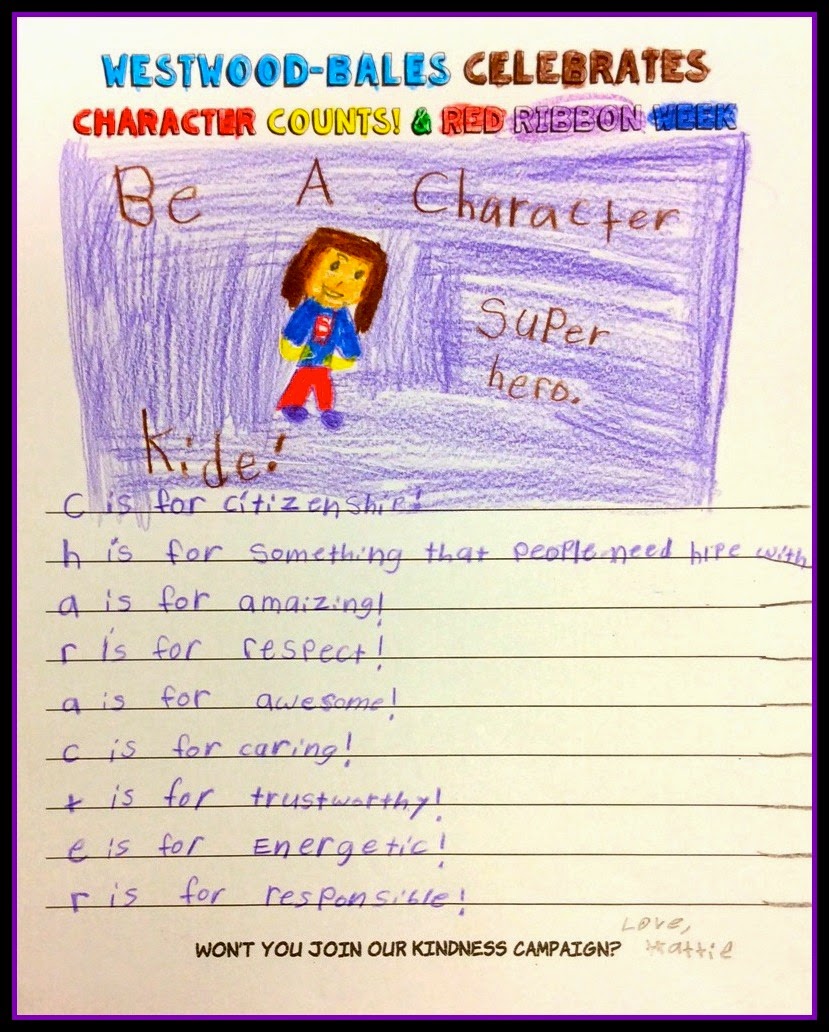 WESTWOOD-BALES CELEBRATES
CHARACTER COUNTS! & RED RIBBON WEEK
Be A Character
Super
hero.
Kide!
S
c is for citizenship!
h is for something that people need hlpe with
a is for amaizing!
r is for respect!
a is for awesome!
c is for caring!
t is for trustworthy!
e is for Energetic!
r is for responsible!
Love,
WON'T YOU JOIN OUR KINDNESS CAMPAIGN? Hattie